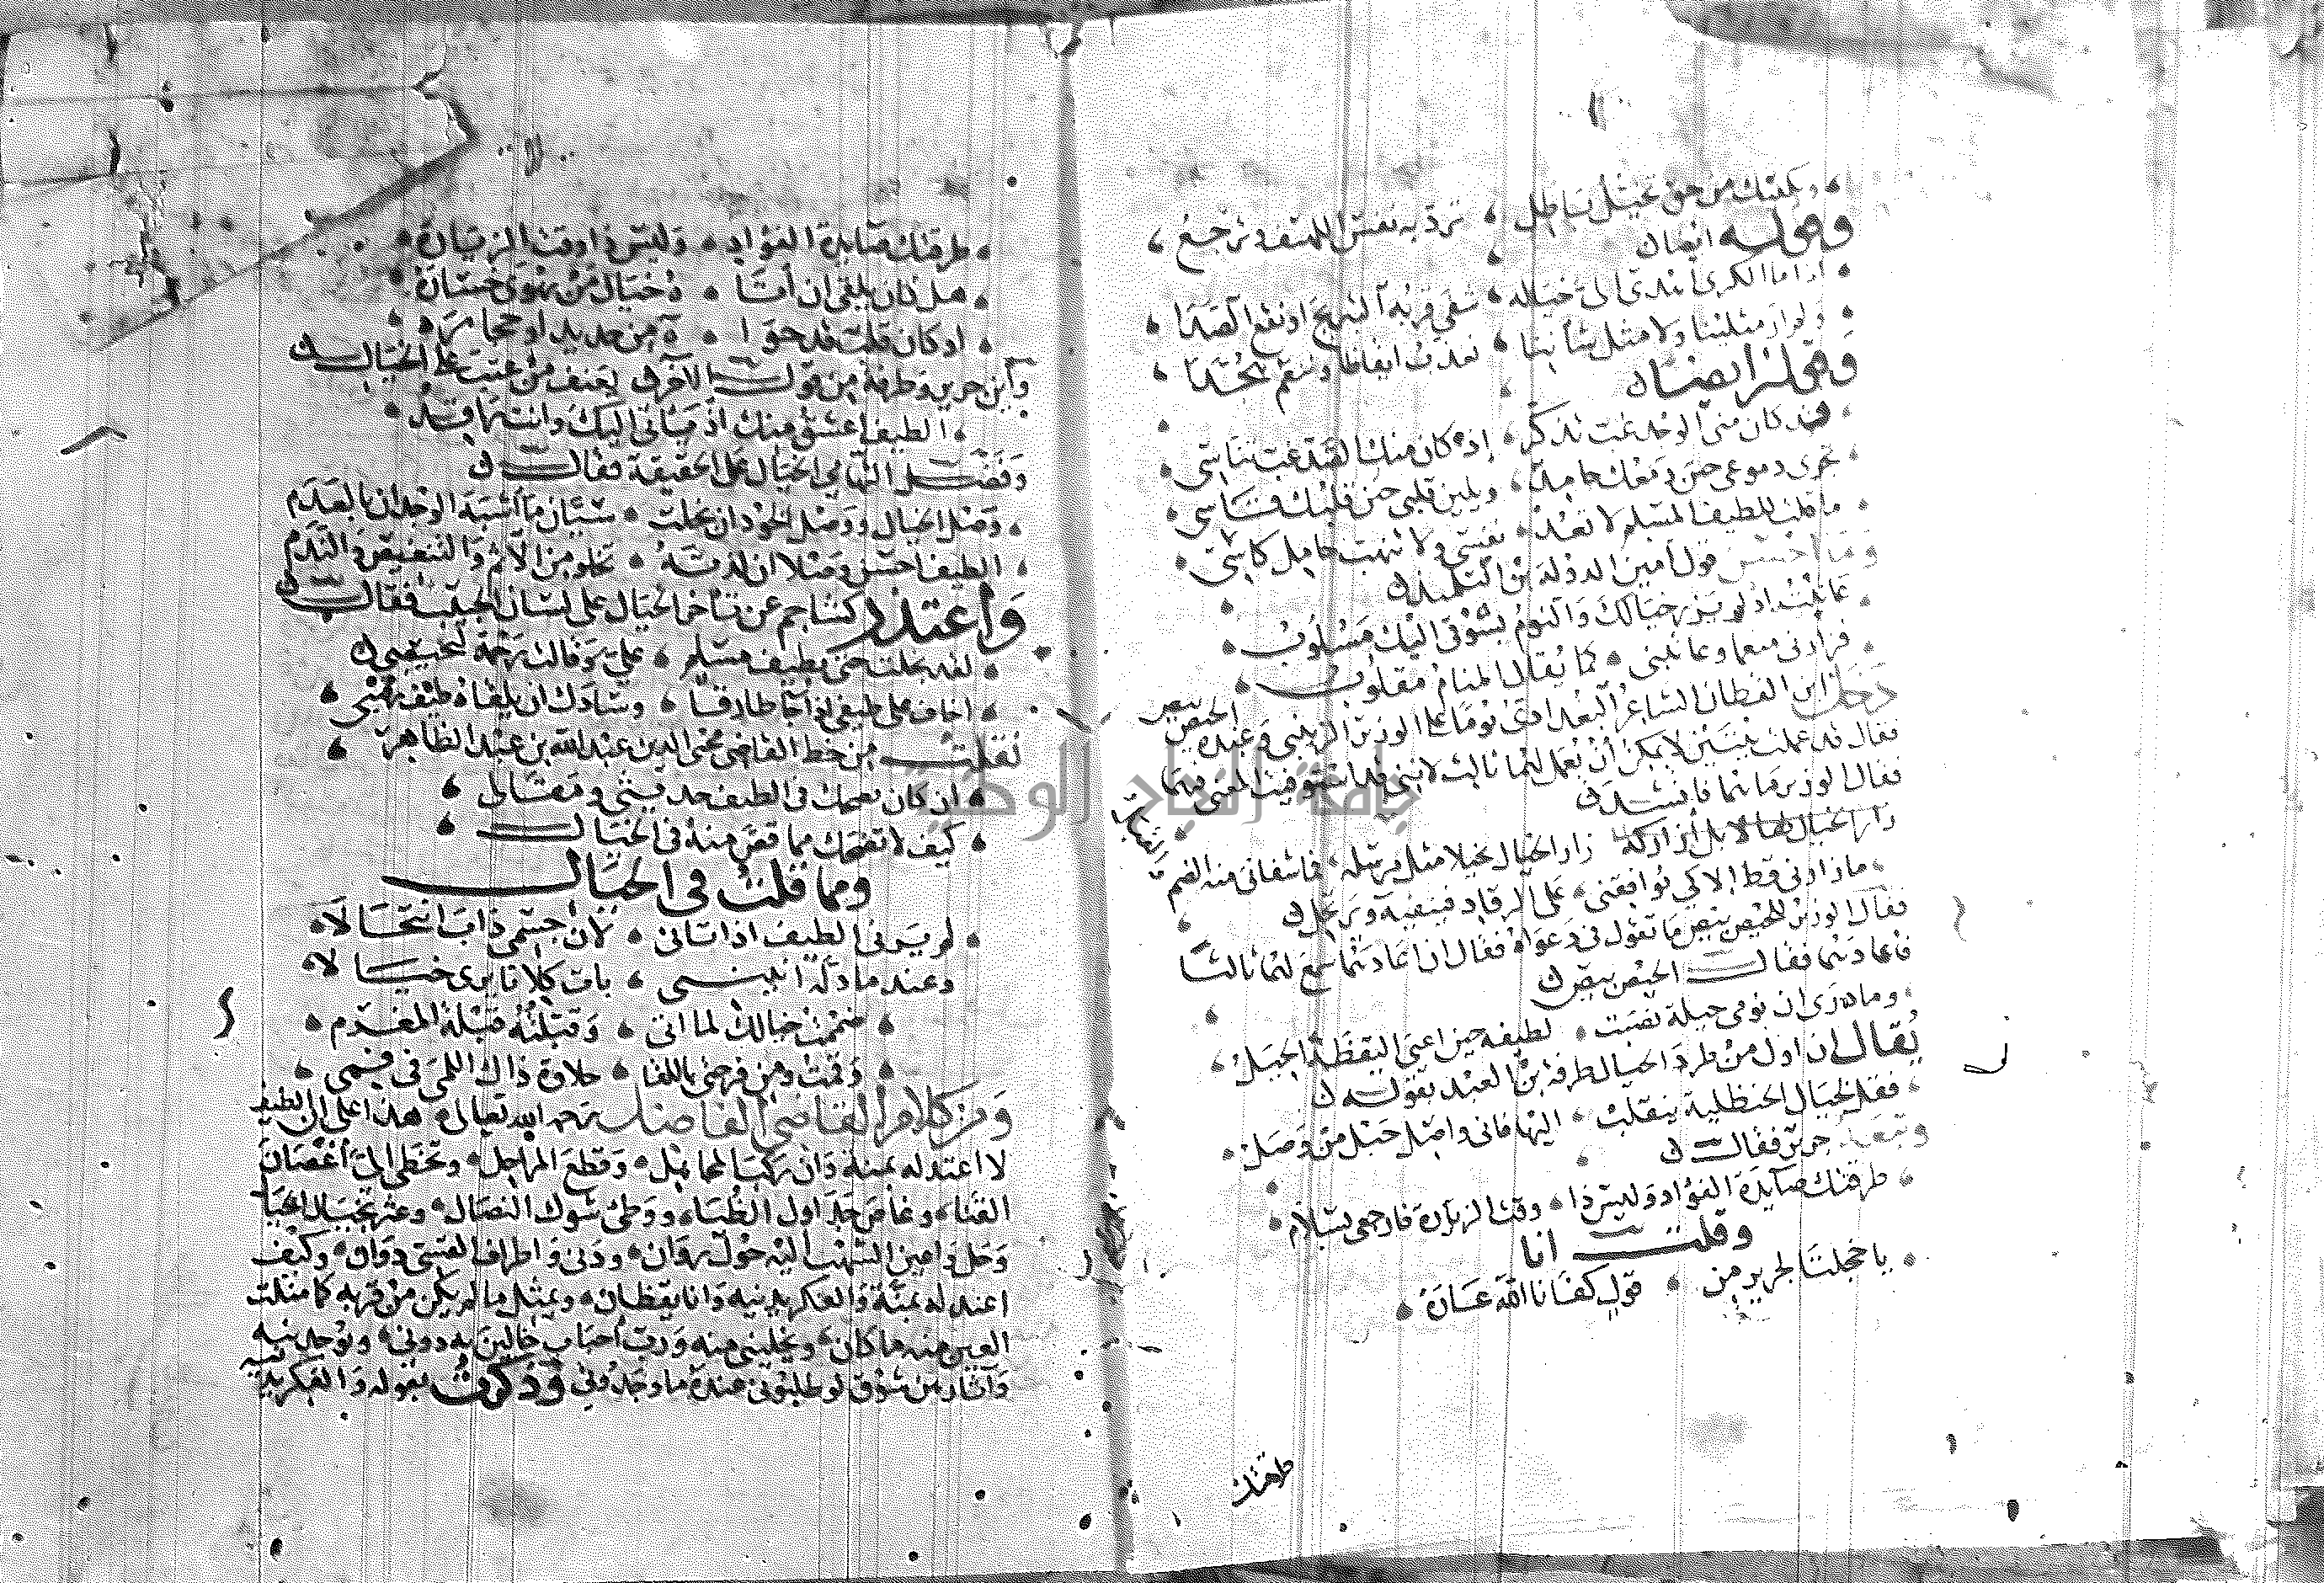 ويكفيك من حق تخيل باطل • ترد به نفس اللهيف وترجع
وقوله ايضا
اذا ما الكرى اهدى الي خياله • شفى قربه التبريح او نقع الصدا
ولم ار مثلينا ولا مثل شأننا • نعذب ايقاظا وننعم هجدا
وقوله ايضا
قد كان مني الوجد غب تذكر • إذ كان منك الصد غب تناسي
تجري دموعي حين دمعك جامد • ويلين قلبي حين قلبك قاسي
ما قلت للطيف المسلم لا تعد • تغشى ولا نهنهت حامل كاسي
وما احسن قول أمين الدولة بن التلميذ
عاتبت اذ لم يزر خيالك والنوم بشوقي اليك مسلوب
فزارني منعما وعاتبني • كما يقال المنام مقلوب
دخل ابن القطان الشاعر البغدادي يوما على الوزير الزينبي وعنده الحيص بيص
فقال قد عملت بيتين لا يمكن أن يعمل لهما ثالث لانني قد استوفيت المعنى فيهما
فقال الوزير ما هما فانشده
زار الخيال بخيلا مثل مرسله • فما شفاني منه الضم
والقبل
ما زارني قط الا كي يوافقني • على الرقاد فينفيه ويرتحل
فقال الوزير للحيص بيص ما تقول في دعواه فقال ان اعادهما سمع لهما ثالثا
فاعادهما فقال الحيص بيص
وما درى ان نومي حيلة نصبت • لطيفه حين اعيى اليقظة الحيل
يقال ان اول من طرد الخيال طرفة بن العبد بقوله
فقل لخيال الحنظلية ينقلب • اليها فاني واصل حبل من وصل
وتبعه جرير فقال
طرقتك صايدة الفؤاد وليس ذا • وقت الزيارة فارجعي بسلام
وقلت انا
يا خجلتا لجرير من • قول كفانا الله عاره
طرقتك
طرقتك صايدة الفؤاد • وليس ذا وقت الزياره
هل كان يلقى ان أتا • ه خيال من يهوى خساره
او كان قلب قد حوا • ه من حديد او حجاره
وأين جرير وطرفة من قول الآخر يعنف من عتب على الخيال
الطيف اعشق منك اذ ياتي اليك وانت راقد
وفضل التهامي الخيال على الحقيقة فقال
وصل الخيال ووصل الخود ان بخلت • سيان ما أشبه الوجدان بالعدم
الطيف احسن وصلا ان لذته • تخلو من الاثم والتنغيص والندم
واعتذر كشاجم عن تأخر الخيال على لسان الحبيب فقال
لقد بخلت حتى بطيف مسلم • علي وقالت رحمة لنحيبي
اخاف على طيفي اذا جا طارقا • وسادك ان يلقاه طيف رقيبي
نقلت من خط القاضي محيي الدين عبد الله بن عبد الظاهر
ان كان يعجبك في الطيف حديثي ومقال
كيف لا تعجبك مما قص منه في الخيال
ومما قلت في الخيال
لم يرني الطيف اذا اتاني • لأن جسمي ذاب انتحالا
وعند ما دله انيني • بات كلانا يرى خيالا
ضممت خيالك لما اتى • وقبلته قبلة المغرم
وقمت ومن فرحتي باللقا • حلاوة ذاك اللمى في فمي
ومن كلام القاضي الفاضل رحمه الله تعالى هذا على ان الطيف
لا اعتد له بمنة وان ركب المخايل • وقطع المراحل • وتخطى الي أغصان
القنا • وغاض جداول الظبا • ووطئ شوك النصال • وعثر بخيال الخيا
وحل واعين الشهب اليه حول روان • ودنى واطراف القسي دوان • وكيف
اعتد له بمنة والفكر يدنيه وانا يقظان • ويمثل ما لم يكن من قربه كما مثلت
العين منه ما كان • ويخليني منه ورب احباب خالين به دوني • ويوجدنيه
وآثار من شوق لو طلبوني عنده ما وجدوني وذكرت بقوله والفكر يدنيه